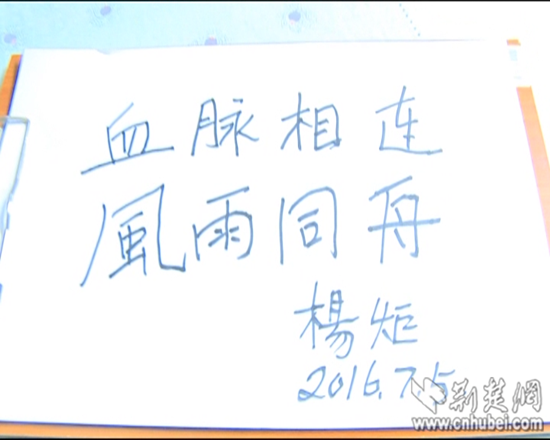 血脉相连
風雨同舟
楊炬
2016.7.5
荆楚網
www.cnhubei.com